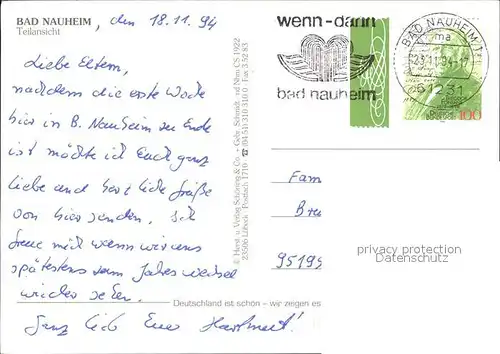 BAD NAUHEIM, den 18.11.94
Teilansicht
Liebe Eltern,
nachdem die erste Woche
hier in B. Nauheim zu Ende
ist möchte ich Euch ganz
liebe und herzliche Grüße
von hier senden. Ich
freue mich wenn wir uns
spätestens zum Jahreswechsel
wieder sehen.
Ganz lieb Euer Hartmut!
Deutschland ist schön – wir zeigen es
© Herst. u. Verlag Schöning & Co. + Gebr. Schmidt
23506 Lübeck · Postfach 1710 · ☎ (04 51) 310 310 · Fax 3 52 83
wenn-dann
bad nauheim
BAD NAUHEIM 1
ma
23.11.94-17
61231
100
Fam
Bre
95195
privacy protection
Datenschutz